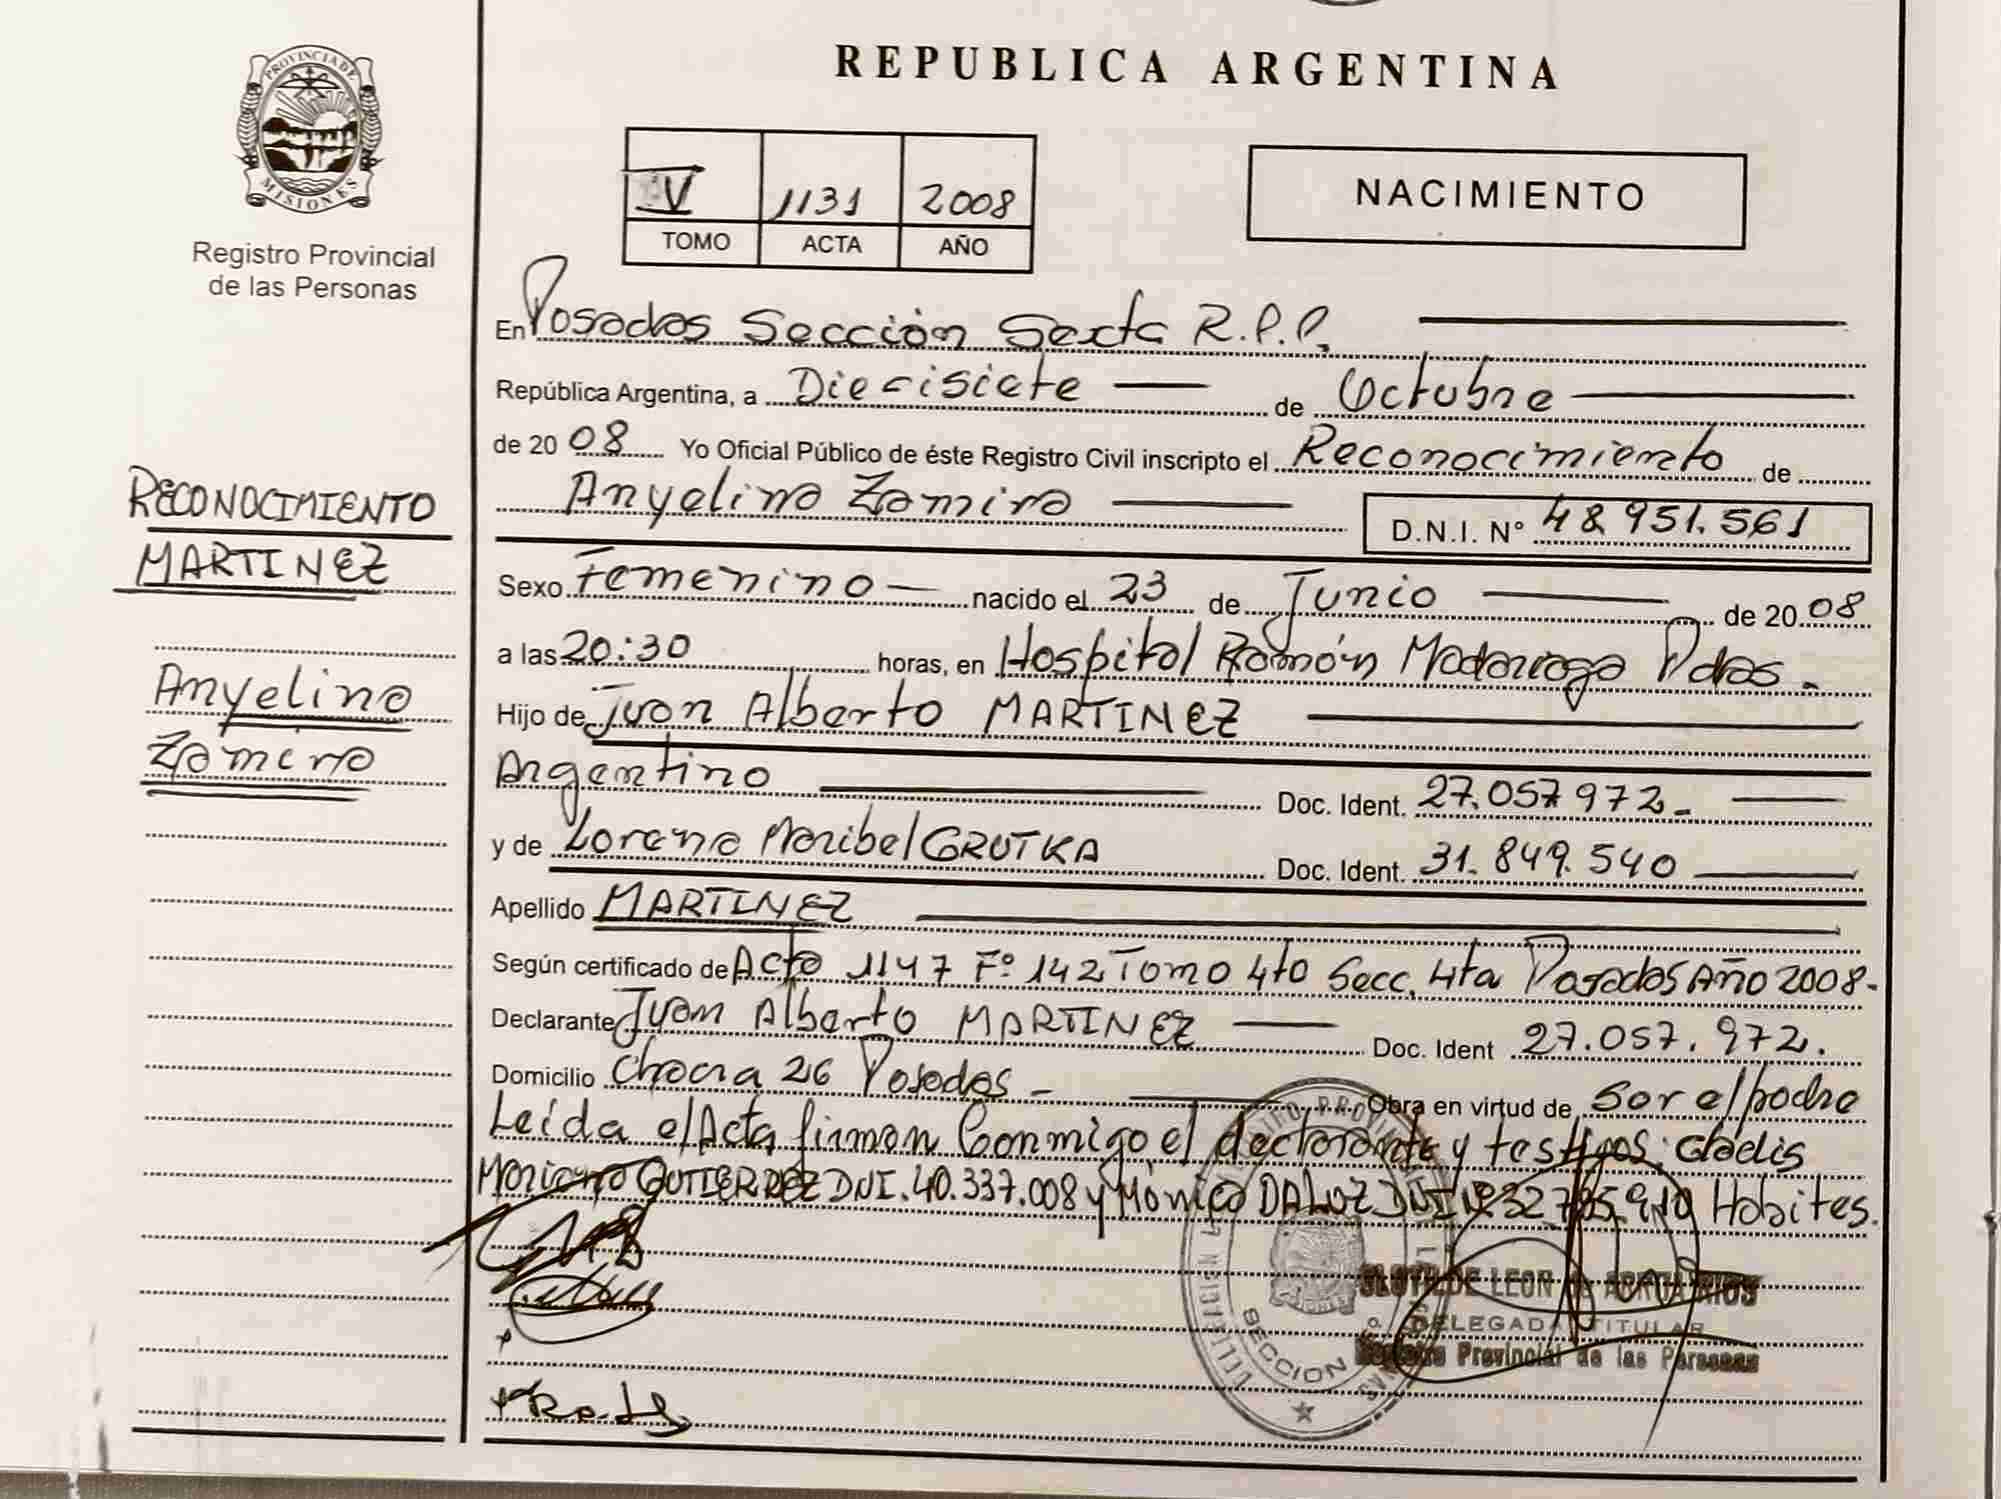 PROVINCIA DE
MISIONES
Registro Provincial
de las Personas
RECONOCIMIENTO
MARTINEZ
Anyelina
Zamira
REPUBLICA ARGENTINA
IV 1131 2008
TOMO ACTA AÑO
NACIMIENTO
En Posadas Sección Sexta R.P.P.
República Argentina, a Diecisiete de Octubre
de 20 08 Yo Oficial Público de éste Registro Civil inscripto el Reconocimiento de
Anyelina Zamira D.N.I. N° 48.951.561
Sexo Femenino nacido el 23 de Junio de 20 08
a las 20:30 horas, en Hospital Ramón Madariaga Pdas.
Hijo de Juan Alberto MARTINEZ
Argentino Doc. Ident. 27.057.972.
y de Lorena Maribel GRUTKA Doc. Ident. 31.849.540
Apellido MARTINEZ
Según certificado de Acta 1147 Fº 142 Tomo 4to Secc. 4ta Posadas Año 2008.
Declarante Juan Alberto MARTINEZ Doc. Ident 27.057.972.
Domicilio Chacra 26 Posadas - Obra en virtud de Ser el padre
Leída el Acta firman Conmigo el declarante y testigos: Gladis
Mariana GUTIERREZ DNI. 40.337.008 y Mónica DALUZ DNI Nº 32 Habites.
SECCION
LEON de
DELEGADA TITULAR
Registro Provincial de las Personas